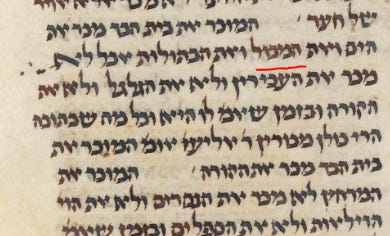 של חצר המוכר את בית הבד מכר את
הים ואת הממל ואת הבתולות אבל לא
מכר את העכירין ולא את הגלגל ולא את
הקורה ובזמן שאמ' לו היא וכל מה שבתוכה
הרי כולן מכורין ר' אליעז' אומ' המוכר את
בית הבד מכר את הקורה המוכר את
המרחץ לא מכר את הנסרים ולא את
ולא את הספסלים ובזמן שאמ'